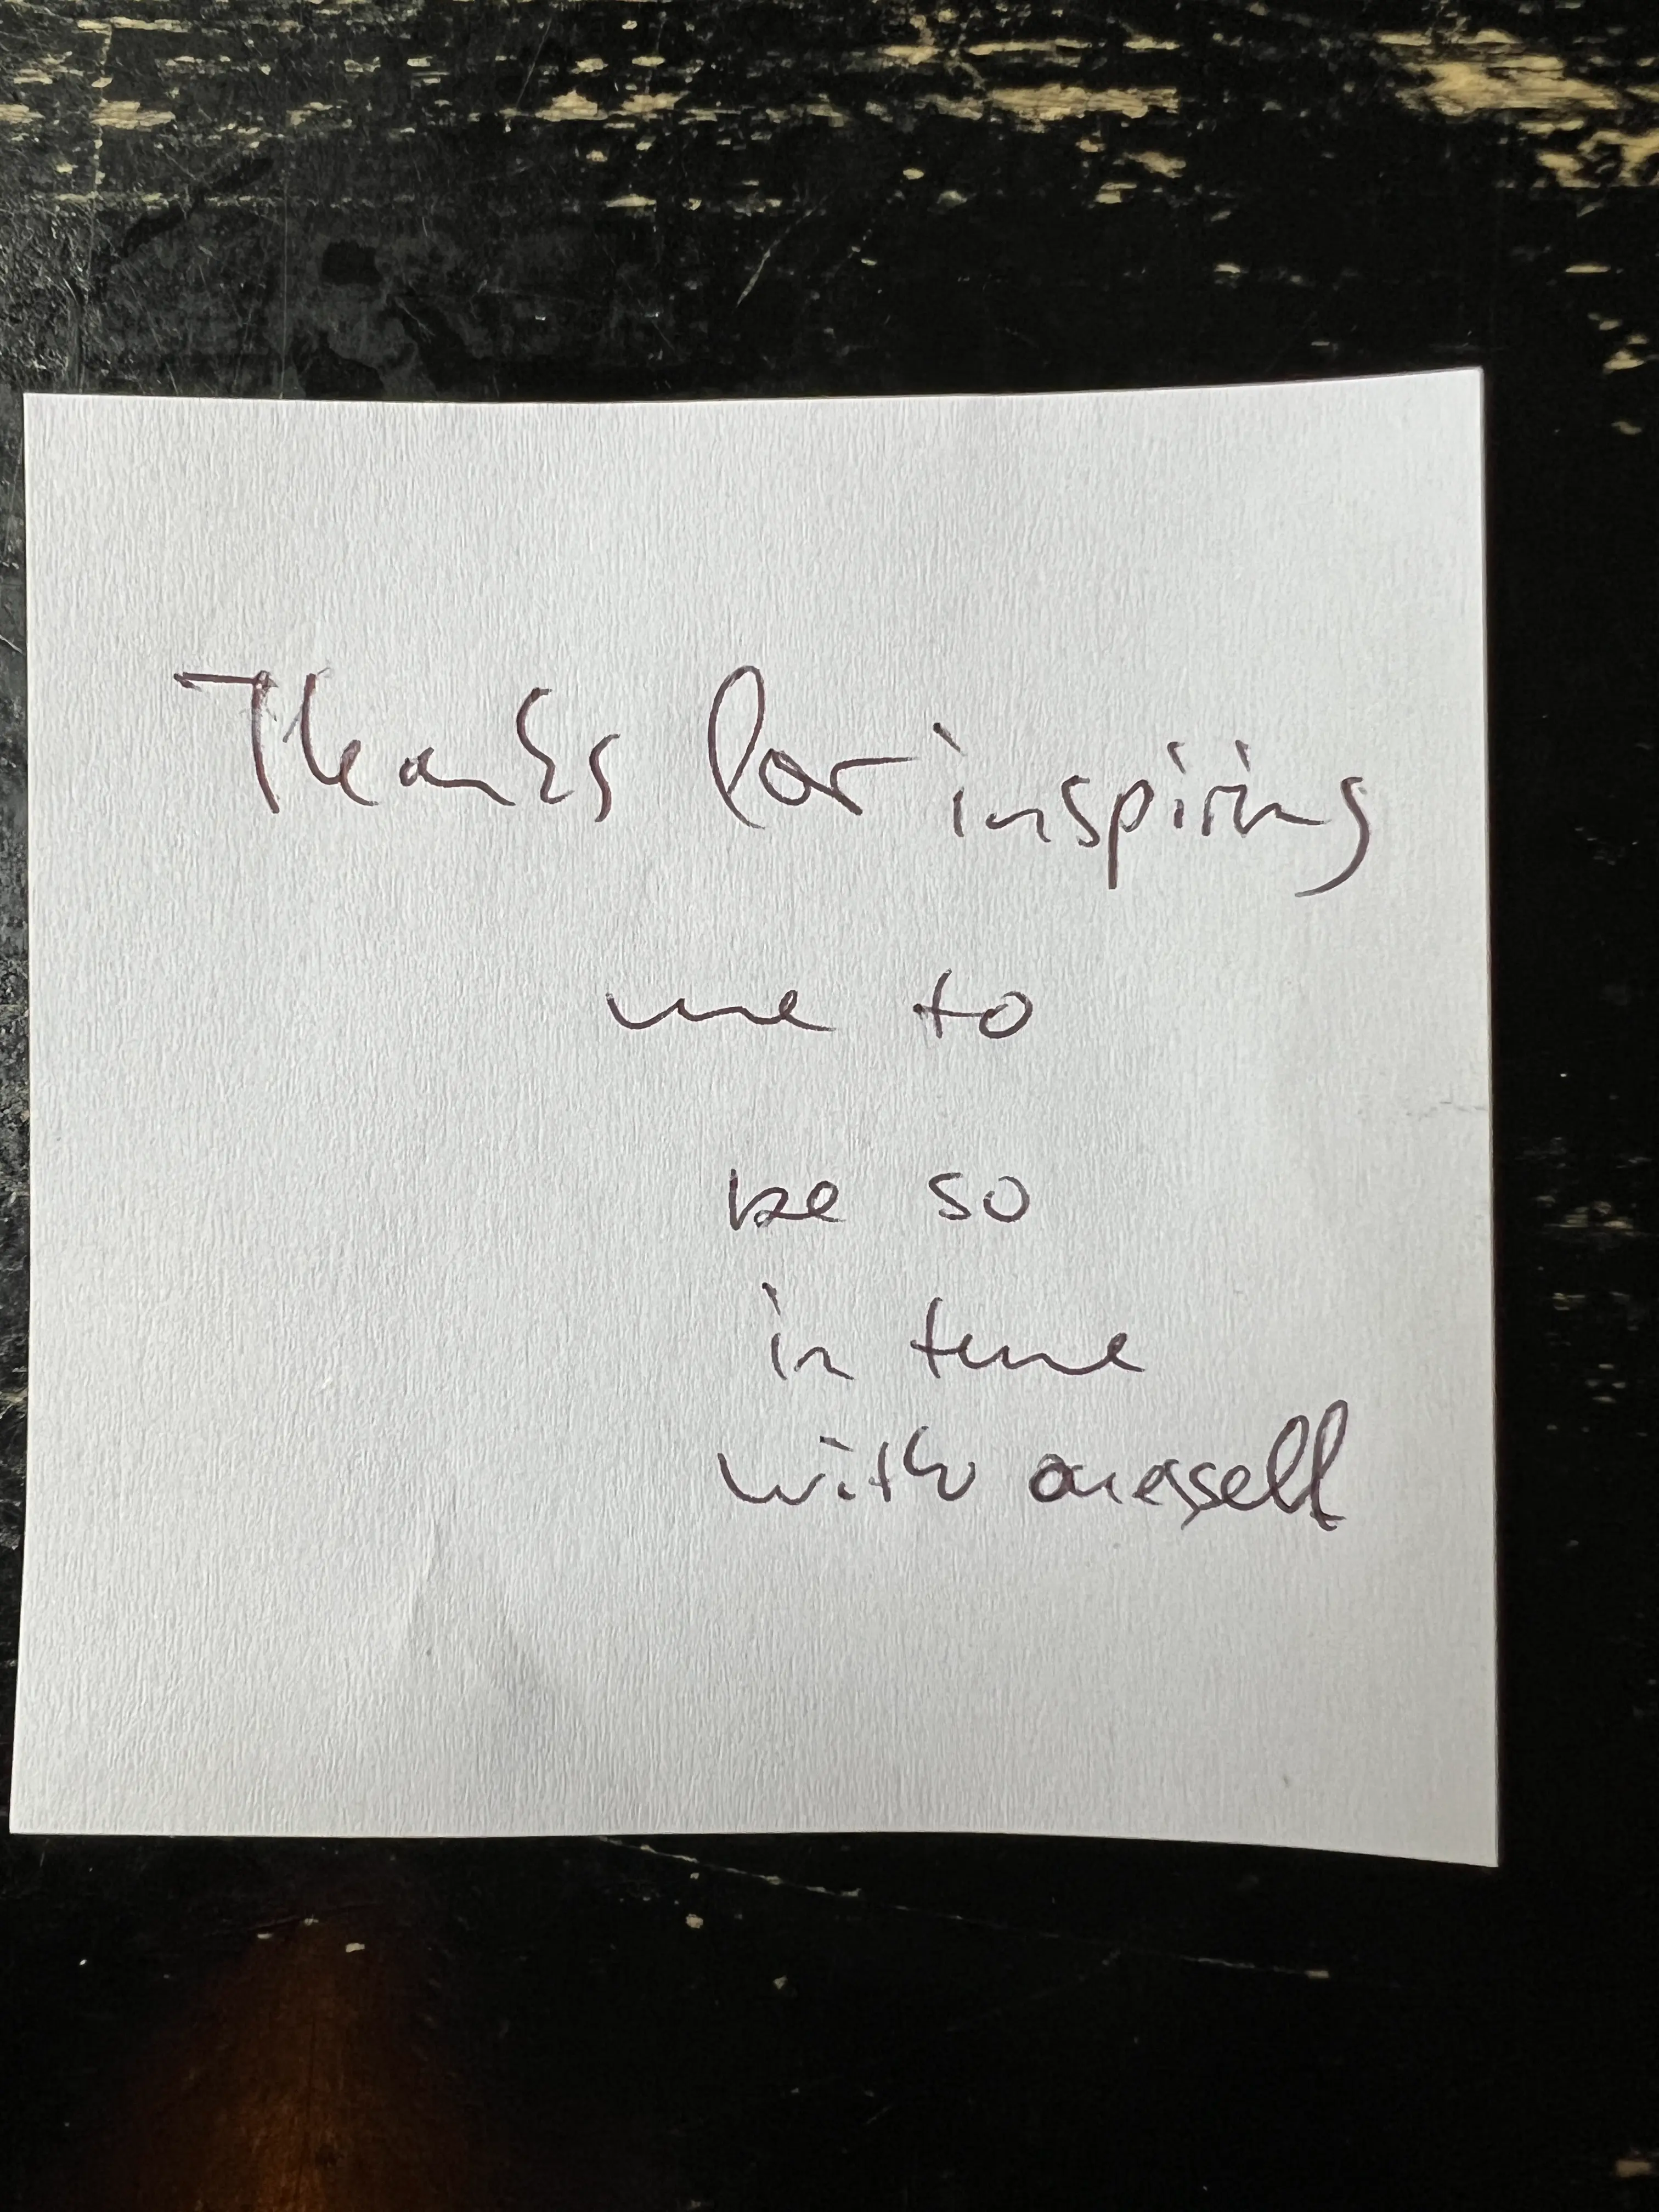 Thanks for inspiring
me to
be so
in tune
with oneself